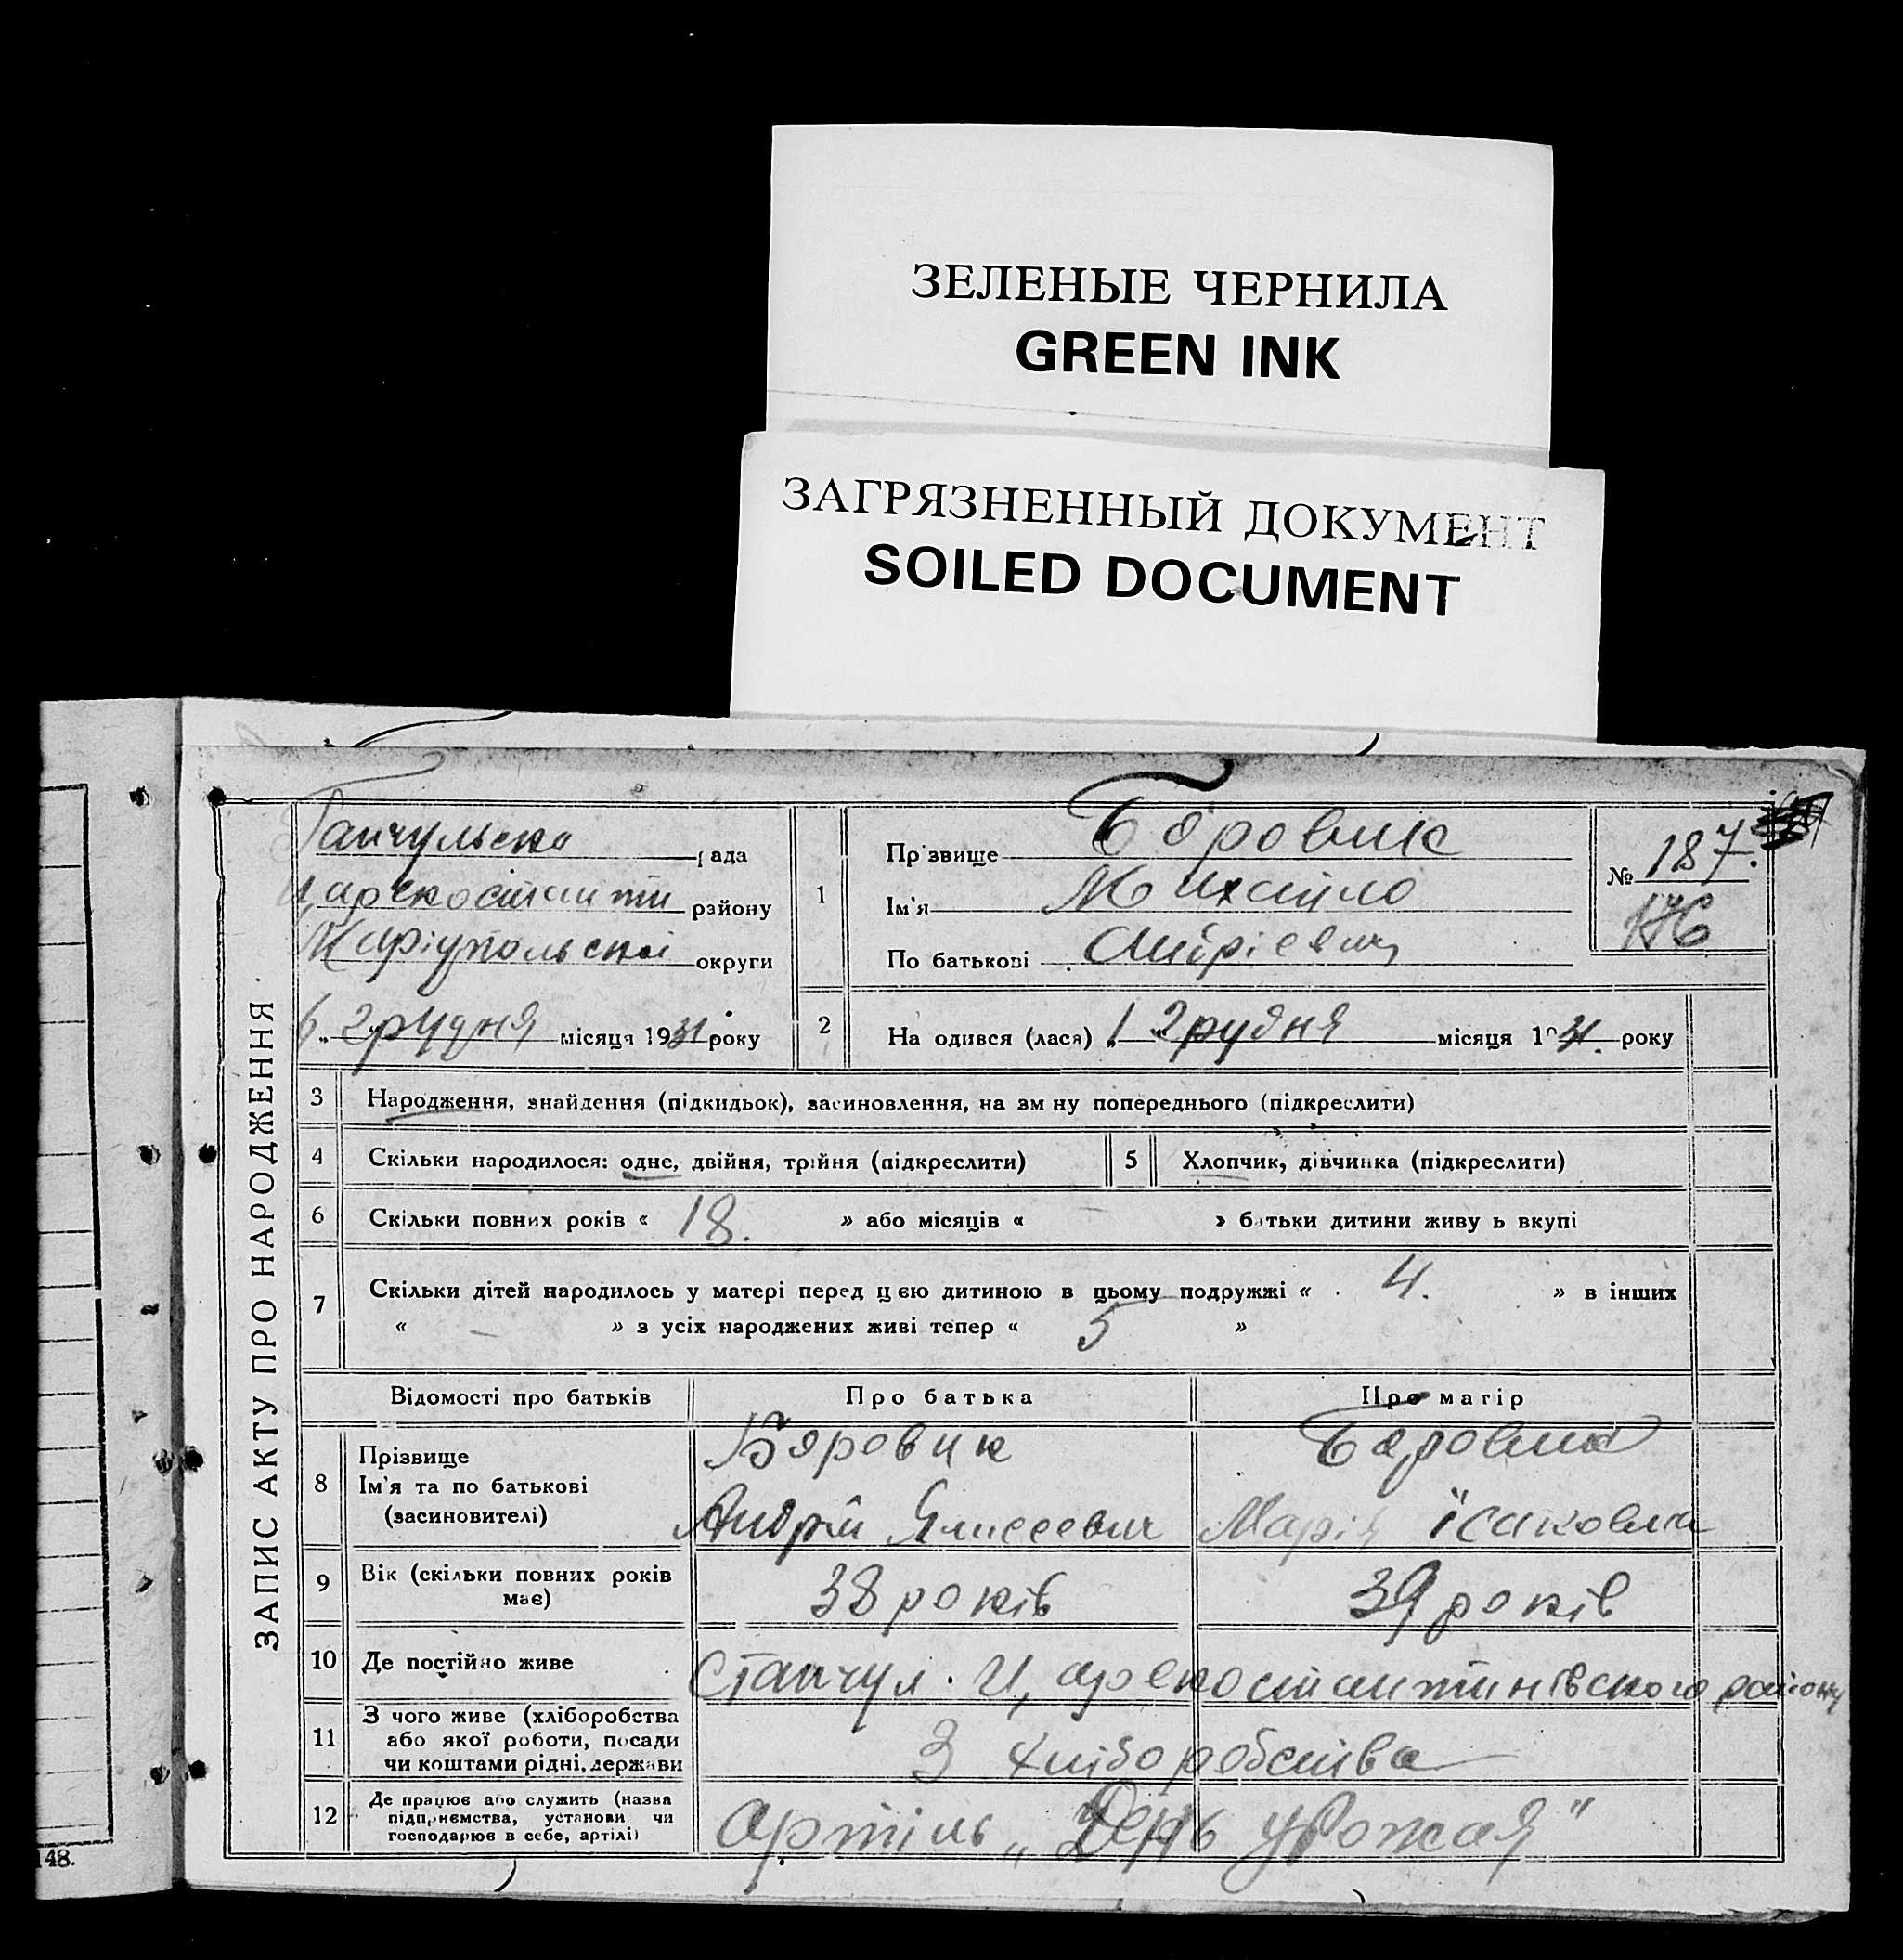 ЗЕЛЕНЫЕ ЧЕРНИЛА
GREEN INK
ЗАГРЯЗНЕННЫЙ ДОКУМЕНТ
SOILED DOCUMENT
ЗАПИС АКТУ ПРО НАРОДЖЕННЯ
Гайчульска рада
Царекостянти району
Маріупольскої округи
6 " грудня місяця 1931 року
1 Прізвище Боровик
Ім'я Михайло
По батькові Андрієвич
№ 187.
176
2 На одився (лася) " 1 " грудня місяця 1931. року
3 Народження, знайдення (підкидьок), засиновлення, на зм ну попереднього (підкреслити)
4 Скільки народилося: одне, двійня, трійня (підкреслити) 5 Хлопчик, дівчинка (підкреслити)
6 Скільки повних років « 18. » або місяців « — » батьки дитини живу ь вкупі
7 Скільки дітей народилось у матері перед цією дитиною в цьому подружжі « 4. » в інших
« — » з усіх народжених живі тепер « 5 »
Відомості про батьків Про батька Про матір
8 Прізвище
Ім'я та по батькові
(засиновителі)
Боровик
Андрій Єлисеевич
Боровик
Марія Ісаковна
9 Вік (скільки повних років має) 38 років 39 років
10 Де постійно живе Ст Гайчул. Царекостянтинівского району
11 З чого живе (хліборобства
або якої роботи, посади
чи коштами рідні, держави
З хліборобства
12 Де працює або служить (назва
підприємства, установи чи
господарює в себе, артілі)
Артіль „День урожая"
148.